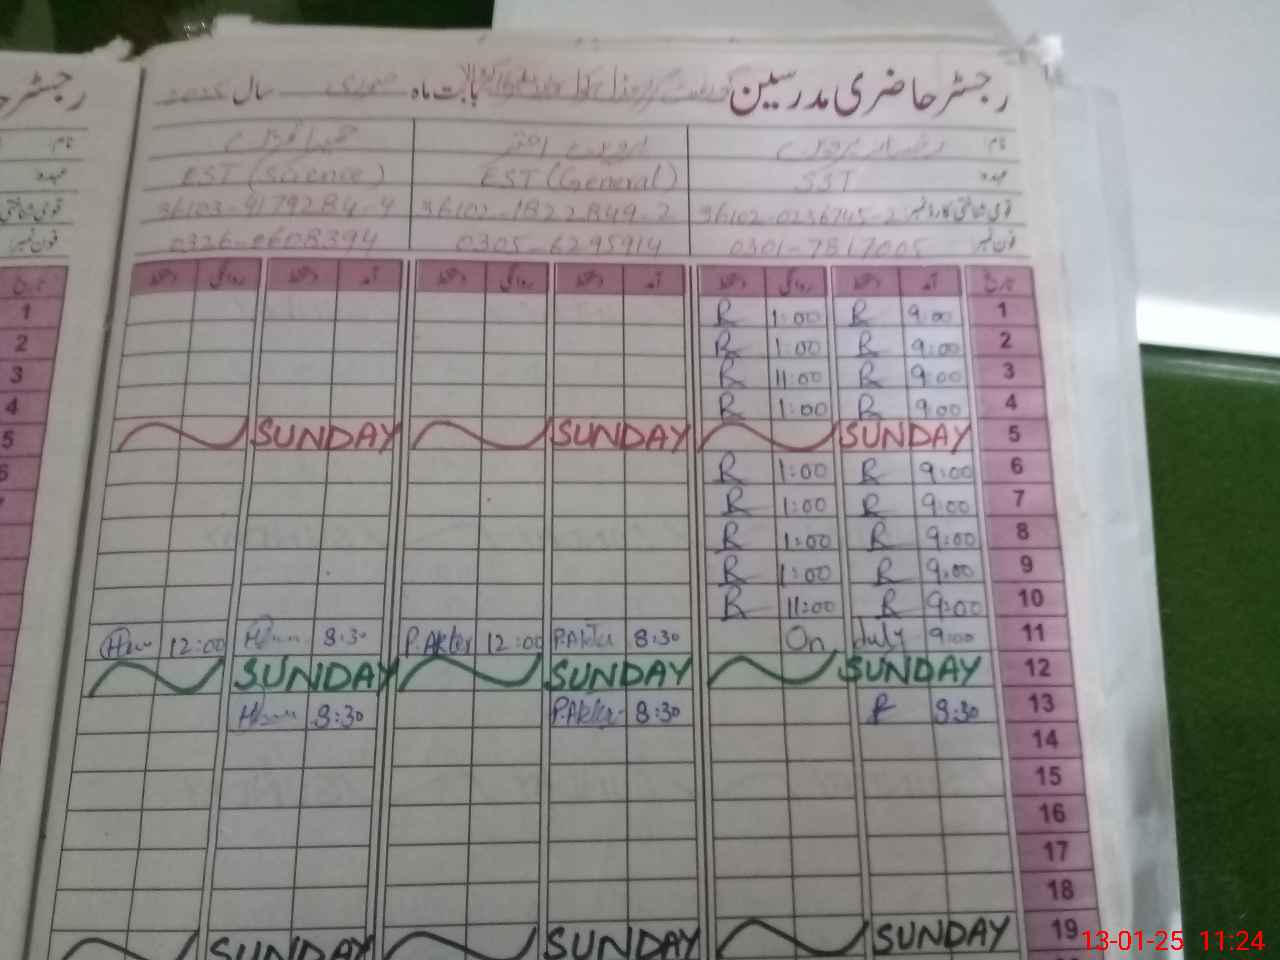 رجسٹر حاضری مدرسین بابت ماہ جنوری سال 2025
نام
عہدہ SST EST (General) EST (Science)
قومی شناختی کارڈ نمبر 36102-0236745-2 36102-1822849-2 36103-9179284-4
فون نمبر 0301-7817005 0305-6295914 0326-8608394
تاریخ آمد دستخط روانگی دستخط آمد دستخط روانگی دستخط آمد دستخط روانگی دستخط
1 9:00 R 1:00 R
2 9:00 R 1:00 R
3 9:00 R 11:00 R
4 9:00 R 1:00 R
5 SUNDAY SUNDAY SUNDAY
6 9:00 R 1:00 R
7 9:00 R 1:00 R
8 9:00 R 1:00 R
9 9:00 R 1:00 R
10 9:00 R 11:00 R
11 9:00 On duty 8:30 P.Akter 12:00 P.Akter 8:30 12:00
12 SUNDAY SUNDAY SUNDAY
13 8:30 R 8:30 P.Akter 8:30
14
15
16
17
18
19 SUNDAY SUNDAY SUNDAY
رجسٹر
نام
عہدہ
قومی شناختی
فون نمبر
تاریخ
1
2
3
4
5
6
7
13-01-25 11:24